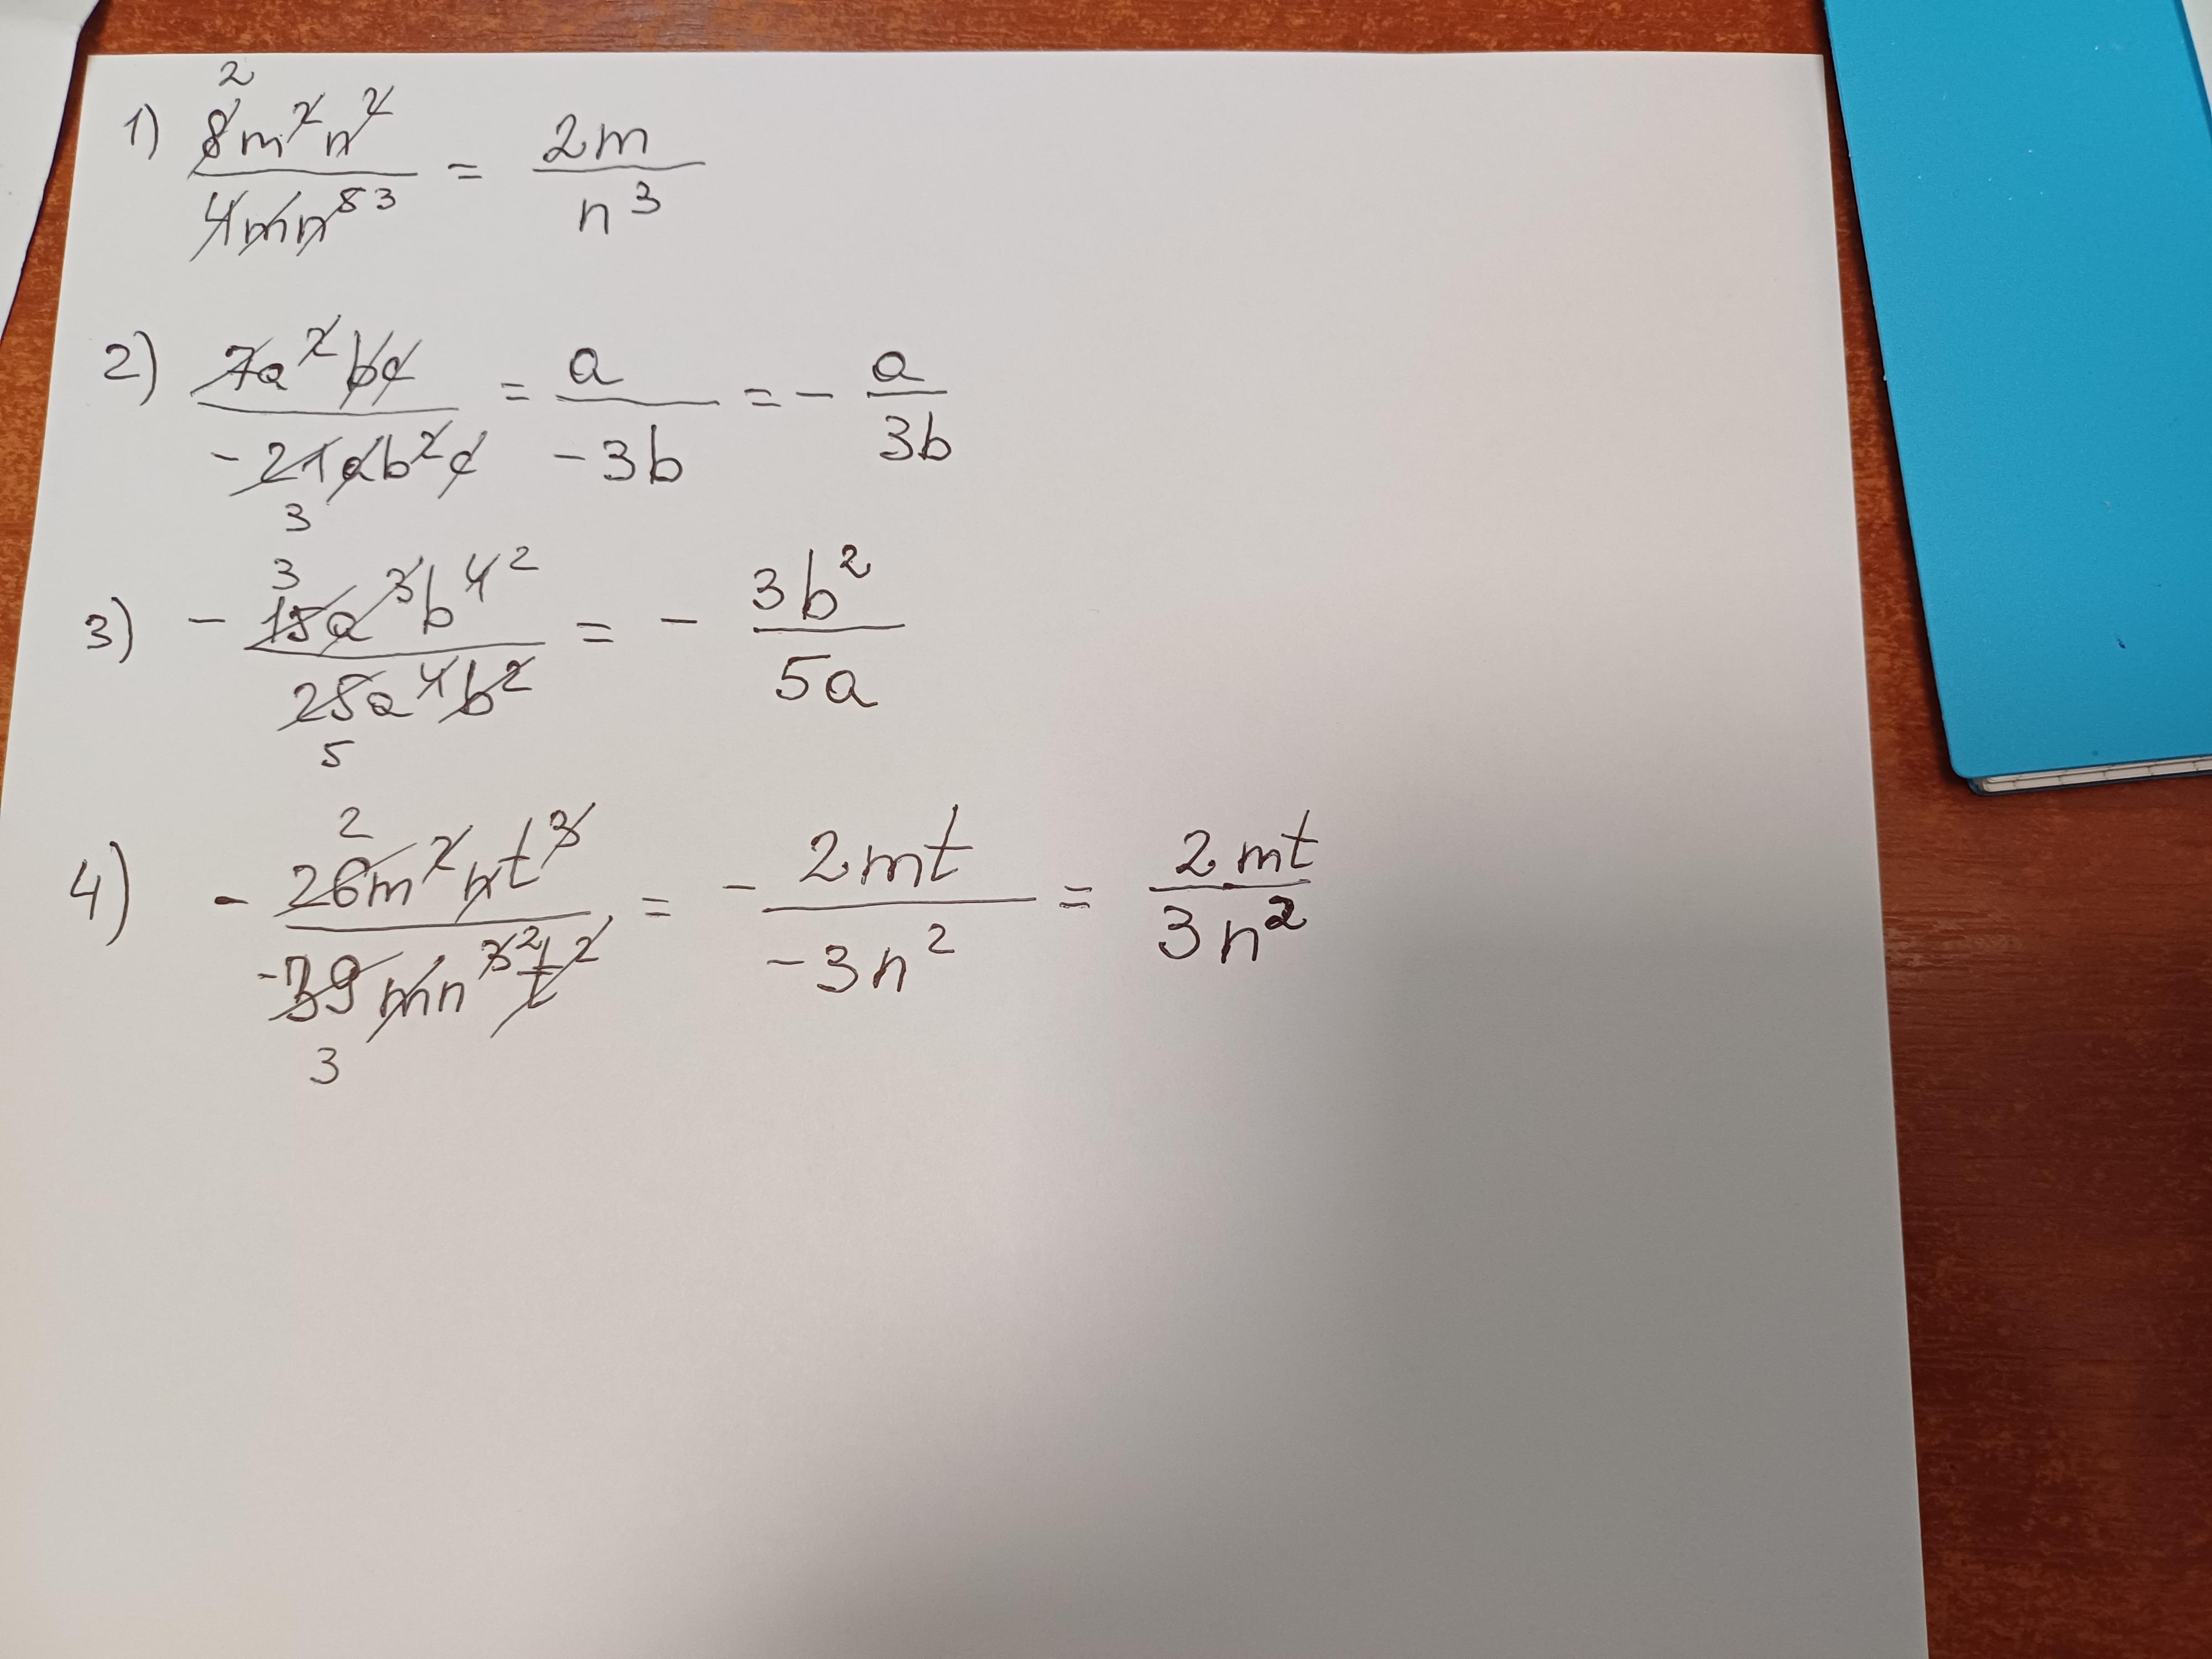 1) 8m²n²/4mn⁵ 3 = 2m/n³
2) 7a²bc/-21ab²c = a/-3b = - a/3b
3) - 15a³b⁴ 2/25a⁴b² = - 3b²/5a
4) - 26m²nt³/-39mn³ 2t² = - 2mt/-3n² = 2mt/3n²